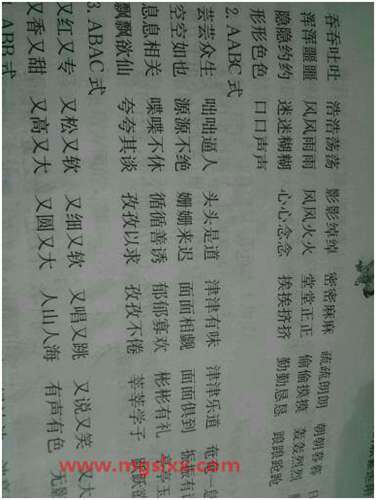 吞吞吐吐 浩浩荡荡 影影绰绰 密密麻麻 疏疏朗朗 朝朝暮暮
浑浑噩噩 风风雨雨 风风火火 堂堂正正 偷偷摸摸 轰轰烈烈
隐隐约约 迷迷糊糊 心心念念 挨挨挤挤 勤勤恳恳
形形色色 口口声声
2. AABC 式
芸芸众生 咄咄逼人 头头是道 津津有味 津津乐道 奄奄一
空空如也 源源不绝 姗姗来迟 面面相觑 面面俱到 振振有
息息相关 喋喋不休 循循善诱 郁郁寡欢 彬彬有礼 亭亭玉
飘飘欲仙 夸夸其谈 孜孜以求 孜孜不倦 莘莘学子
3. ABAC 式
又红又专 又松又软 又细又软 又唱又跳 又说又笑 又大
又香又甜 又高又大 又圆又大 人山人海 有声有色 无影
ABB 式